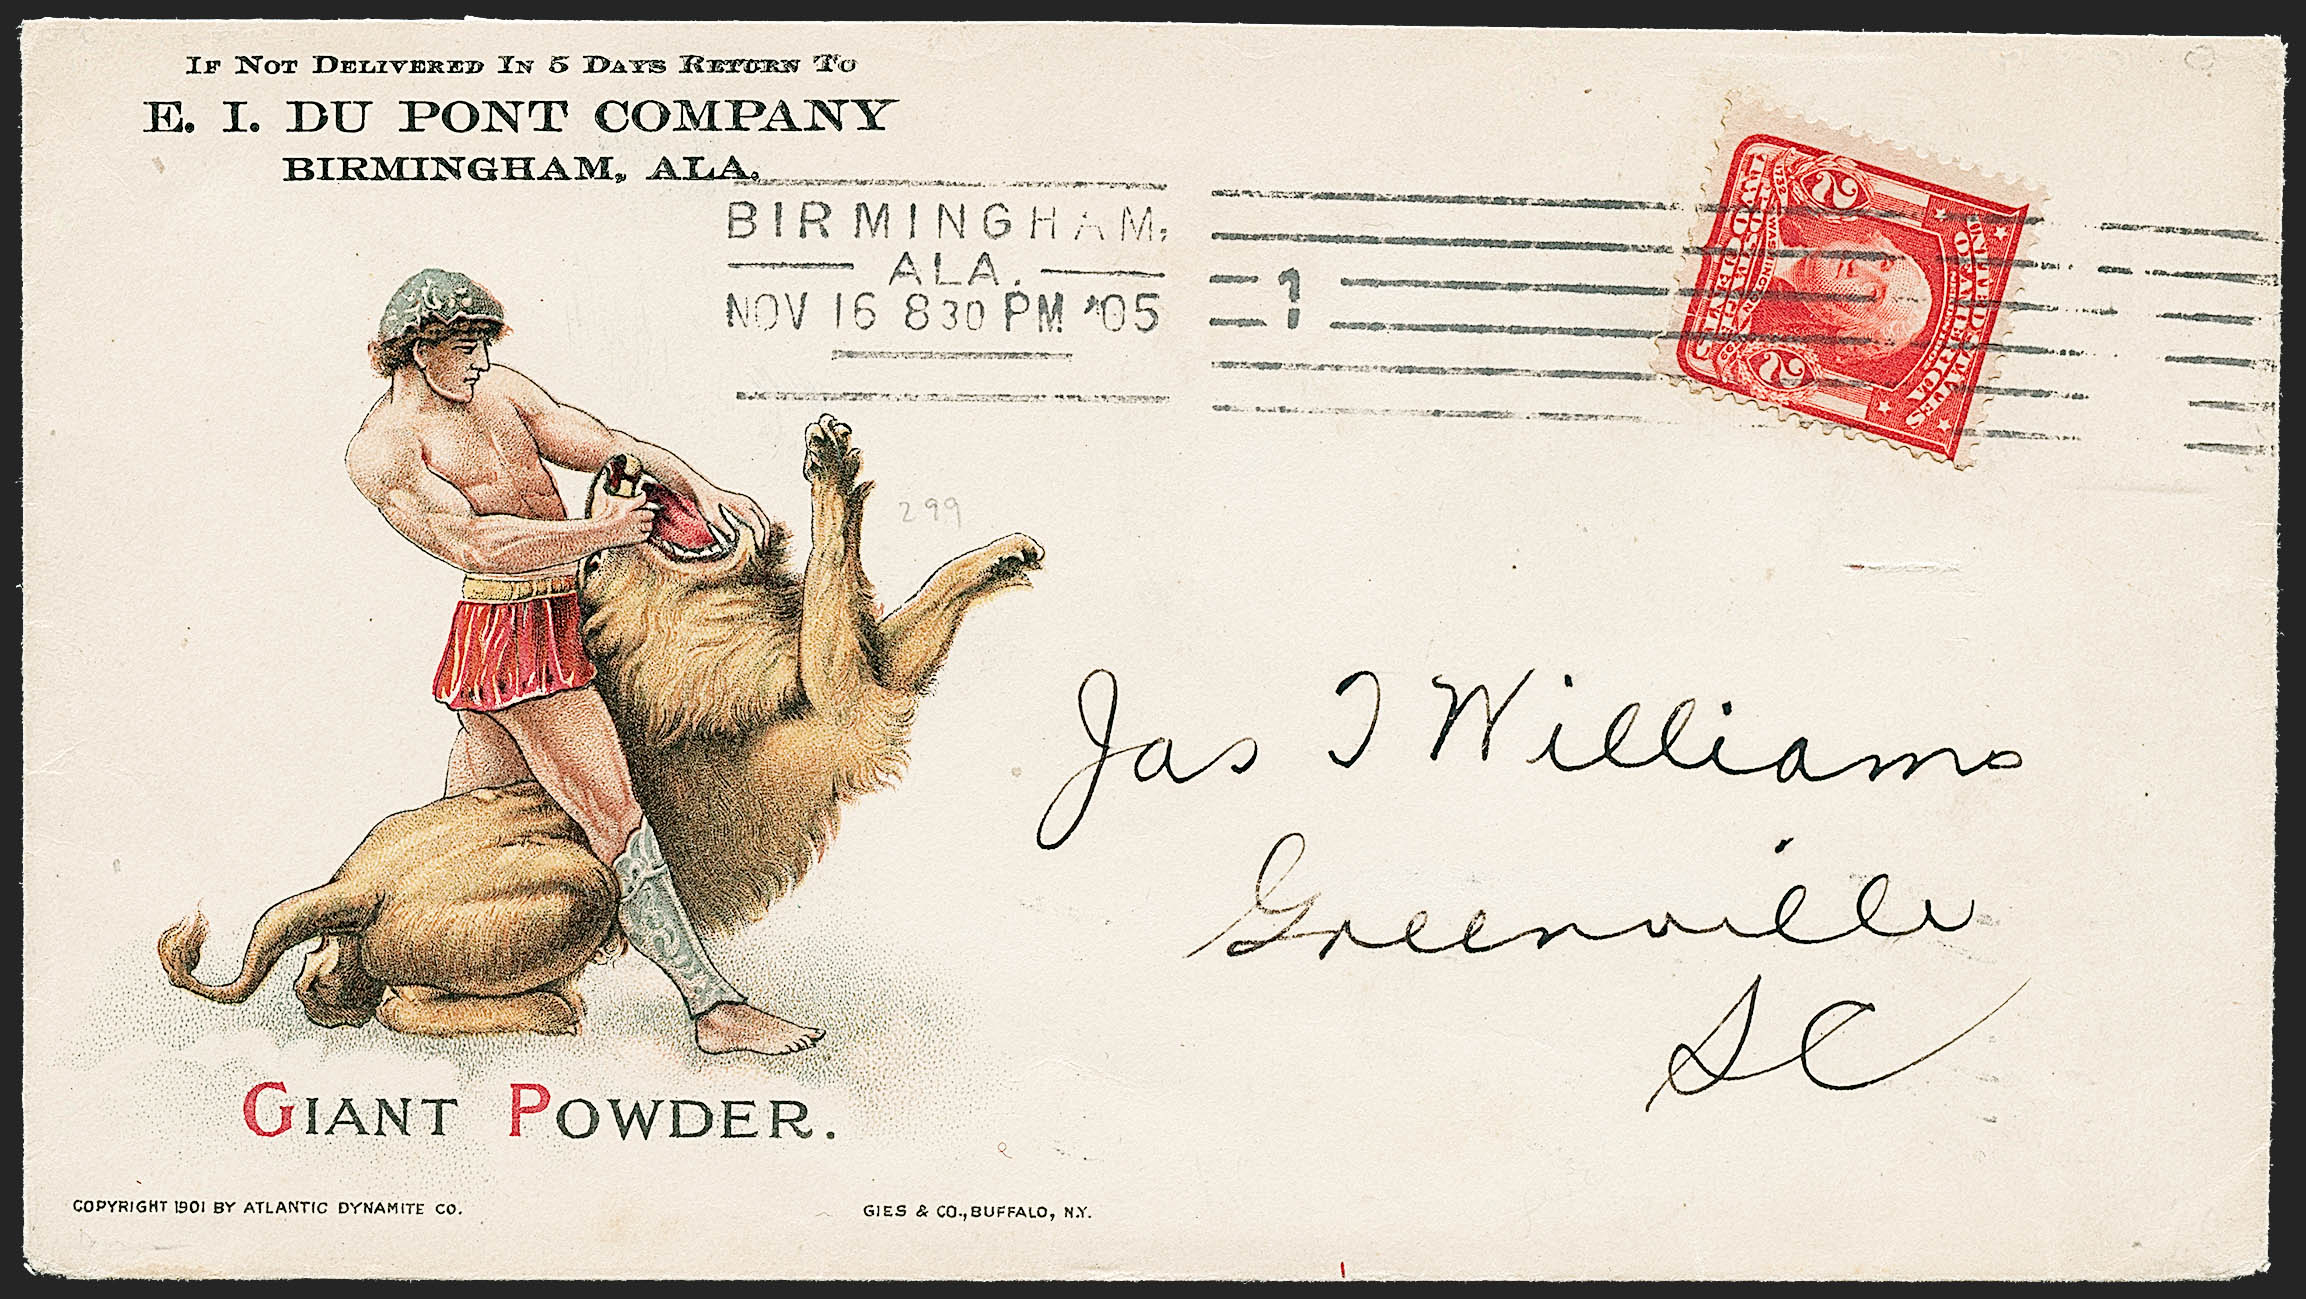 If Not Delivered In 5 Days Return To
E. I. DU PONT COMPANY
BIRMINGHAM, ALA.
BIRMINGHAM,
ALA.
NOV 16 830 PM '05
1
SERIES 1902
POSTAGE
TWO CENTS
2 2
1732 WASHINGTON 1799
UNITED STATES
OF AMERICA
299
Jas T Williams
Greenville
SC
GIANT POWDER.
COPYRIGHT 1901 BY ATLANTIC DYNAMITE CO.
GIES & CO., BUFFALO, N.Y.